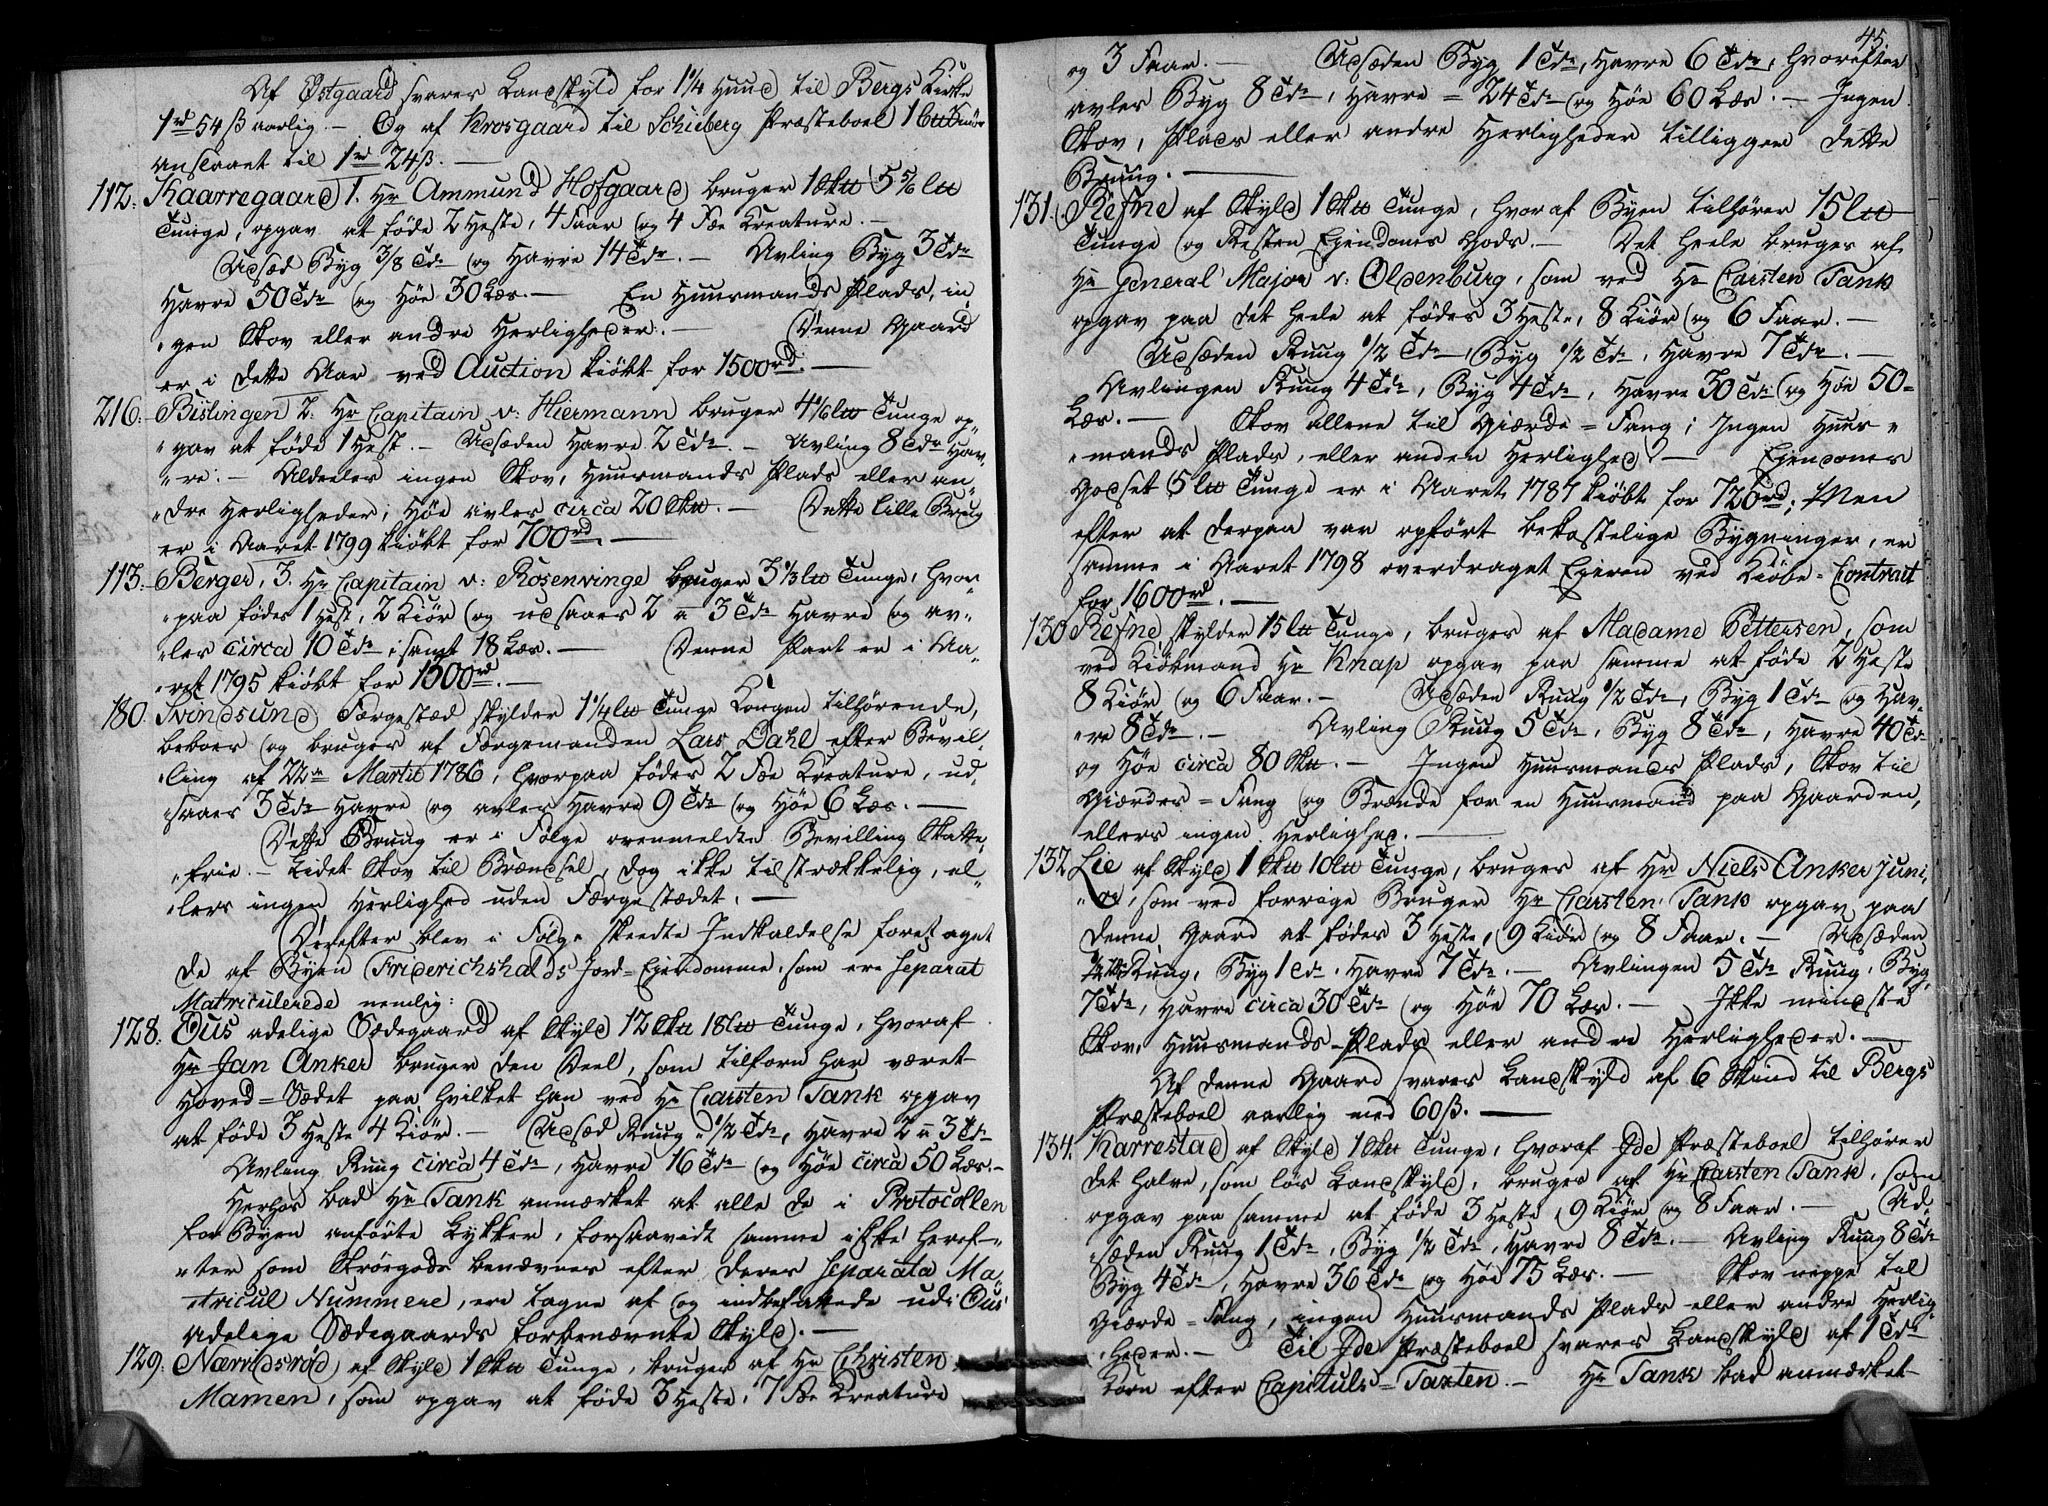 Af Østgaard svares Landskyld for 1 1/4 Huud til Bergs Kirke
1 rd 54 ß aarlig. — Og af Krosgaard til Schieberg Præsteboel 1 b℔ Smør
anslaaet til 1 rd 24 ß. —
112. Kaarregaard 1. Hr Ammund Hofgaard bruger 1 Sk℔ 5 5/6 L℔
Tunge, opgav at føde 2 Heste, 4 Faar og 4 Fæe Kreature. —
Udsæd Byg 3/8 Tdr og Havre 14 Tdr. — Avling Byg 3 Tdr
Havre 50 Tdr og Høe 30 Læs. — En Huusmands Plads, in-
„gen Skov eller andre Herligheder. — Denne Gaard
er i dette Aar ved Auction kiøbt for 1500 rd. —
216. Bislingen 2. Hr Capitain v: Hiermann bruger 4 1/6 L℔ Tunge op-
„gav at føde 1 Hest. — Udsæden Havre 2 Tdr. — Avling 8 Tdr Hav-
„re. — Aldeeles ingen Skov, Huusmands Plads eller an-
„dre Herligheder; Høe avles circa 20 Sk℔. — Dette lille Brug
er i Aaret 1799 kiøbt for 700 rd. —
113. Berger, 3. Hr Capitain v: Rosenvinge bruger 3 1/3 L℔ Tunge, hvor-
„paa fødes 1 Hest, 2 Kiør og udsaaes 2 a 3 Tdr Havre og av-
„les circa 10 Tdr, samt 18 Læs. — Denne Part er i Aa-
„ret 1795 kiøbt for 1500 rd. —
180. Svindsund Færgestæd skylder 1 1/4 L℔ Tunge Kongen tilhørende,
beboes og bruges af Færgemanden Lars Dahl efter Bevil-
„ling af 22de Martii 1786, hvorpaa fødes 2 Fæe Kreature, ud-
„saaes 3 Tdr Havre og avles Havre 9 Tdr og Høe 6 Læs. —
Dette Bruug er i Følge ovenmeldte Bevilling Skatte-
„frie. — Lidet Skov til Brændsel, dog ikke tilstrækkelig, el-
„lers ingen Herlighed uden Færgestædet. —
Derefter blev i Følge skeedte Indkaldelse foretaget
de af Byen Friderichshalds Jord-Ejendomme, som ere separat
Matriculerede nemlig:
128. Ous adelige Sædegaard af Skyld 12 Sk℔ 18 L℔ Tunge, hvoraf
Hr Jan Anker bruger den Deel, som tilforn har været
Hoved-Sædet paa hvilket han ved Hr Carsten Tank opgav
at føde 3 Heste 4 Kiør. — Udsæd Ruug 1/2 Tdr, Havre 2 a 3 Tdr
Avling Ruug circa 4 Tdr, Havre 16 Tdr og Høe circa 50 Læs. —
Herhos bad Hr Tank anmærket at alle de i Protocollen
for Byen anførte Lykker, forsaavidt samme ikke heref-
„ter som Strøegods benævnes efter deres separata Ma-
„tricul Nummere, ere tagne af og indbefattede udi Ous
Adelige Sædegaards forbenævnte Skyld. —
129. Nærridsrød af Skyld 1 Sk℔ Tunge, bruges af Hr Christen
Mamen, som opgav at føde 3 Heste, 7 Fæe Kreature
45.
og 3 Faar. — Udsæden Byg 1 Tdr, Havre 6 Tdr, hvorefter
avles Byg 8 Tdr, Havre = 24 Tdr og Høe 60 Læs. — Ingen
Skov, Plads eller andre Herligheder tilligger dette
Bruug. —
131. Refne af Skyld 1 Sk℔ Tunge, hvoraf Byen tilhører 15 L℔
Tunge og Resten Ejendoms Gods. — Det heele bruges af
Hr General Major v: Oldenburg, som ved Hr Carsten Tank
opgav paa det heele at fødes 3 Heste, 8 Kiør og 6 Faar. —
Udsæden Ruug 1/2 Tdr, Byg 1/2 Td, Havre 7 Tdr. —
Avlingen Ruug 4 Tdr, Byg 4 Tdr, Havre 30 Tdr og Høe 50 =
Læs. — Skov allene til Giærde = Fang; Ingen Huus-
„mands Plads, eller anden Herlighed. — Ejendoms
Godset 5 L℔ Tunge er i Aaret 1787 kiøbt for 720 rd; Men
efter at derpaa var opført bekostelige Bygninger, er
samme i Aaret 1798 overdraget Ejeren ved Kiøbe-Contract
for 1600 rd. —
130. Refne skylder 15 L℔ Tunge, bruges af Madame Pettersen, som
ved Kiøbmand Hr Knap opgav paa samme at føde 2 Heste
8 Kiør og 6 Faar. — Udsæden Ruug 1/2 Tdr, Byg 1 Tdr og Hav-
„re 8 Tdr. — Avling Ruug 5 Tdr, Byg 8 Tdr, Havre 40 Tdr
og Høe circa 80 Sk℔. — Ingen Huusmands Plads, Skov til
Giærdes = Fang og Brænde for en Huusmand paa Gaarden,
ellers ingen Herlighed. —
132. Lie af Skyld 1 Sk℔ 10 L℔ Tunge, bruges af Hr Niels Anker Juni-
„or, som ved forrige Bruger Hr Carsten Tank opgav paa
denne Gaard at fødes 3 Heste, 9 Kiør og 8 Faar. — Udsæden
1/2 Tdr Ruug, Byg 1 Td, Havre 7 Tdr. — Avlingen 5 Tdr Ruug, Byg
7 Tdr, Havre circa 30 Tdr og Høe 70 Læs. — Ikke mindste
Skov, Huusmands-Plads eller andre Herligheder. —
Af denne Gaard svares Landskyld af 6 Skind til Bergs
Præsteboel aarlig med 60 ß. —
134. Karrestad af Skyld 1 Sk℔ Tunge, hvoraf Ide Præsteboel tilhører
det halve, som løs Landskyld, bruges af Hr Carsten Tank, som
opgav paa samme at føde 3 Heste, 9 Kiør og 8 Faar. — Ud-
„sæden Ruug 1 Tdr, Byg 1/2 Tdr, Havre 8 Tdr. — Avling Ruug 8 Tdr
Byg 4 Tdr, Havre 36 Tdr og Høe 75 Læs. — Skov neppe til
Giærde = Fang, ingen Huusmands Plads eller andre Herlig-
„heder. — Til Ide Præsteboel svares Landskyld af 1 Tdr
Korn efter Capituls = Taxten. — Hr Tank bad anmærket